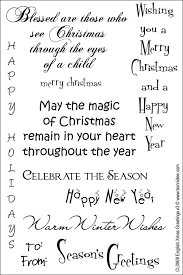 Blessed are those who
see Christmas
through the eyes
of a child
Wishing
you a
Merry
Christmas
and a
Happy
New
Year
merry christmas
HAPPY HOLIDAYS
May the magic
of Christmas
remain in your heart
throughout the year
CELEBRATE THE SEASON
Happy New Year
Warm Winter Wishes
To:
From:
Season's Greetings